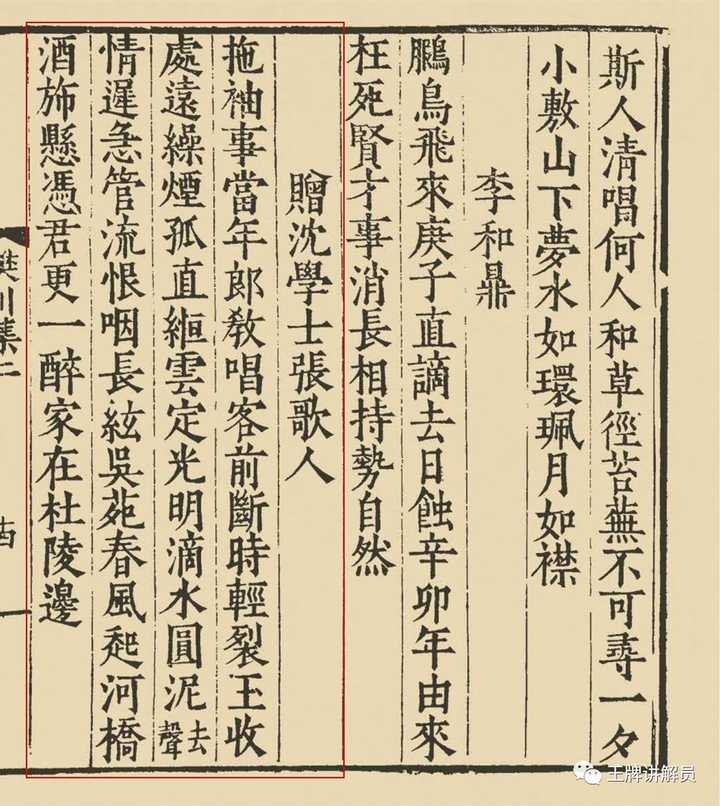 斯人清唱何人和草徑苔蕪不可尋一夕
小敷山下夢水如環珮月如襟
李和鼎
鵬鳥飛來庚子直謫去日蝕辛卯年由來
枉死賢才事消長相持勢自然
贈沈學士張歌人
拖袖事當年郎教唱客前斷時輕裂王收
處遠繰煙孤直緪雲定光明滴水圓泥去聲
情遲急管流恨咽長絃吳苑春風起河橋
酒斾懸憑君更一醉家在杜陵邊
樊川集二
王牌讲解员